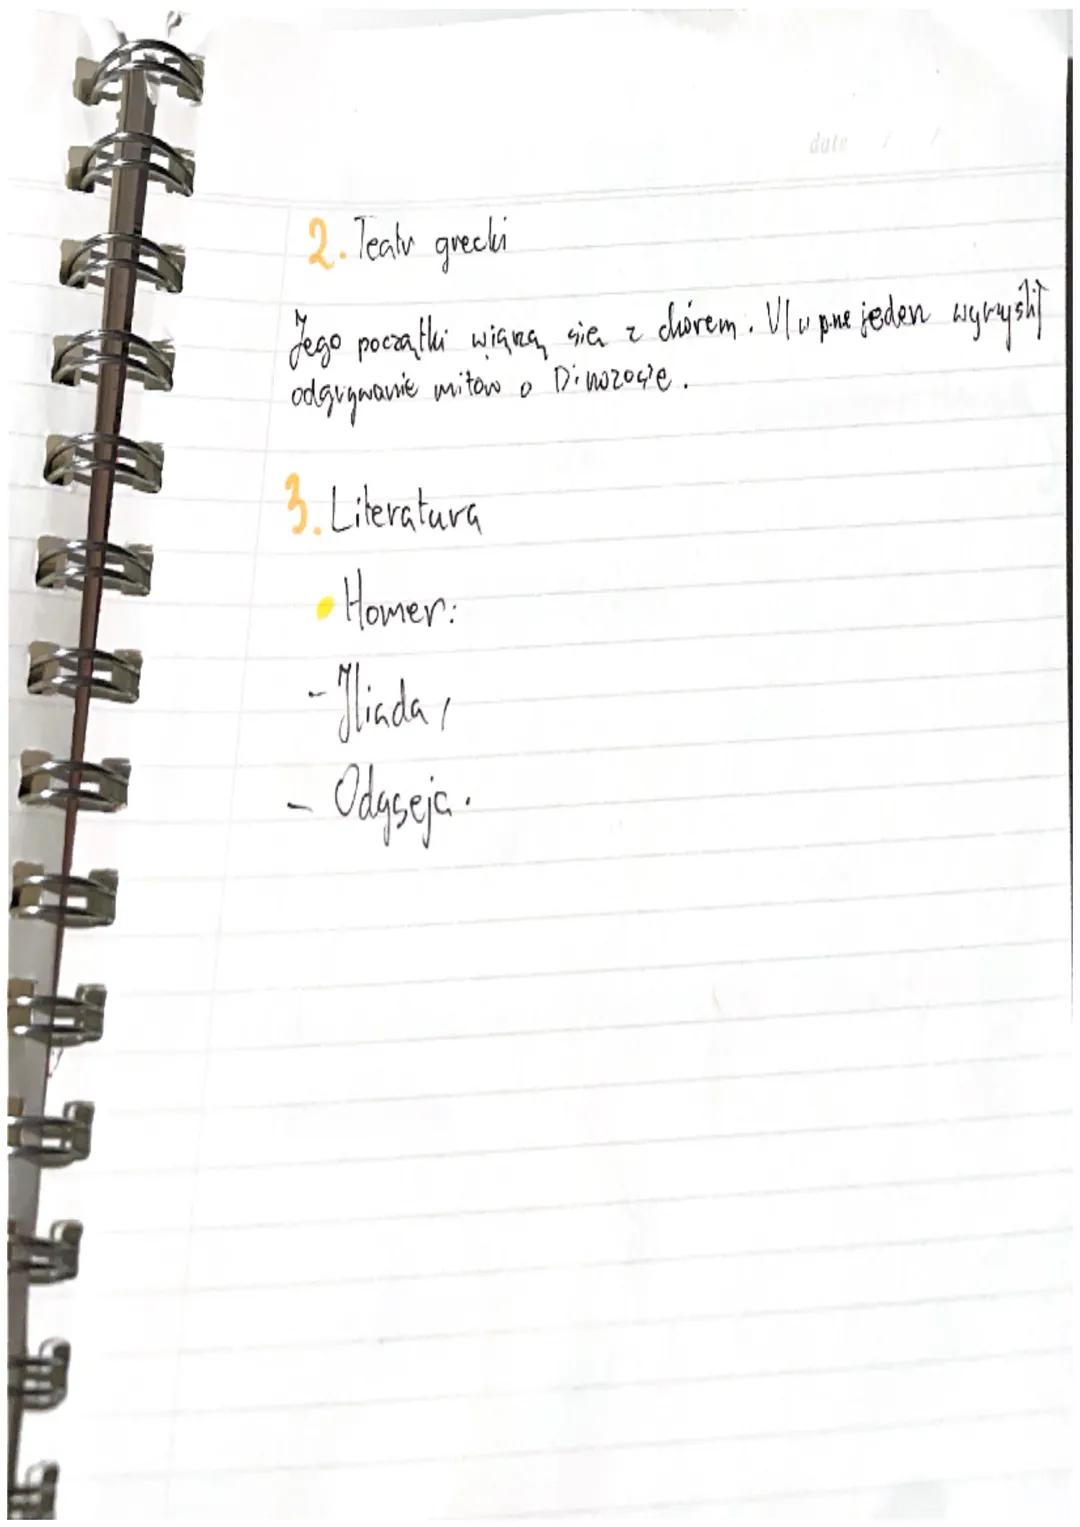 date / /
2. Teatr grecki
Jego początki wiążą się z chórem. VI w p.ne jeden wymyślił
odgrywanie mitów o Dinozosie.
3. Literatura
• Homer:
- Iliada,
- Odyseja.